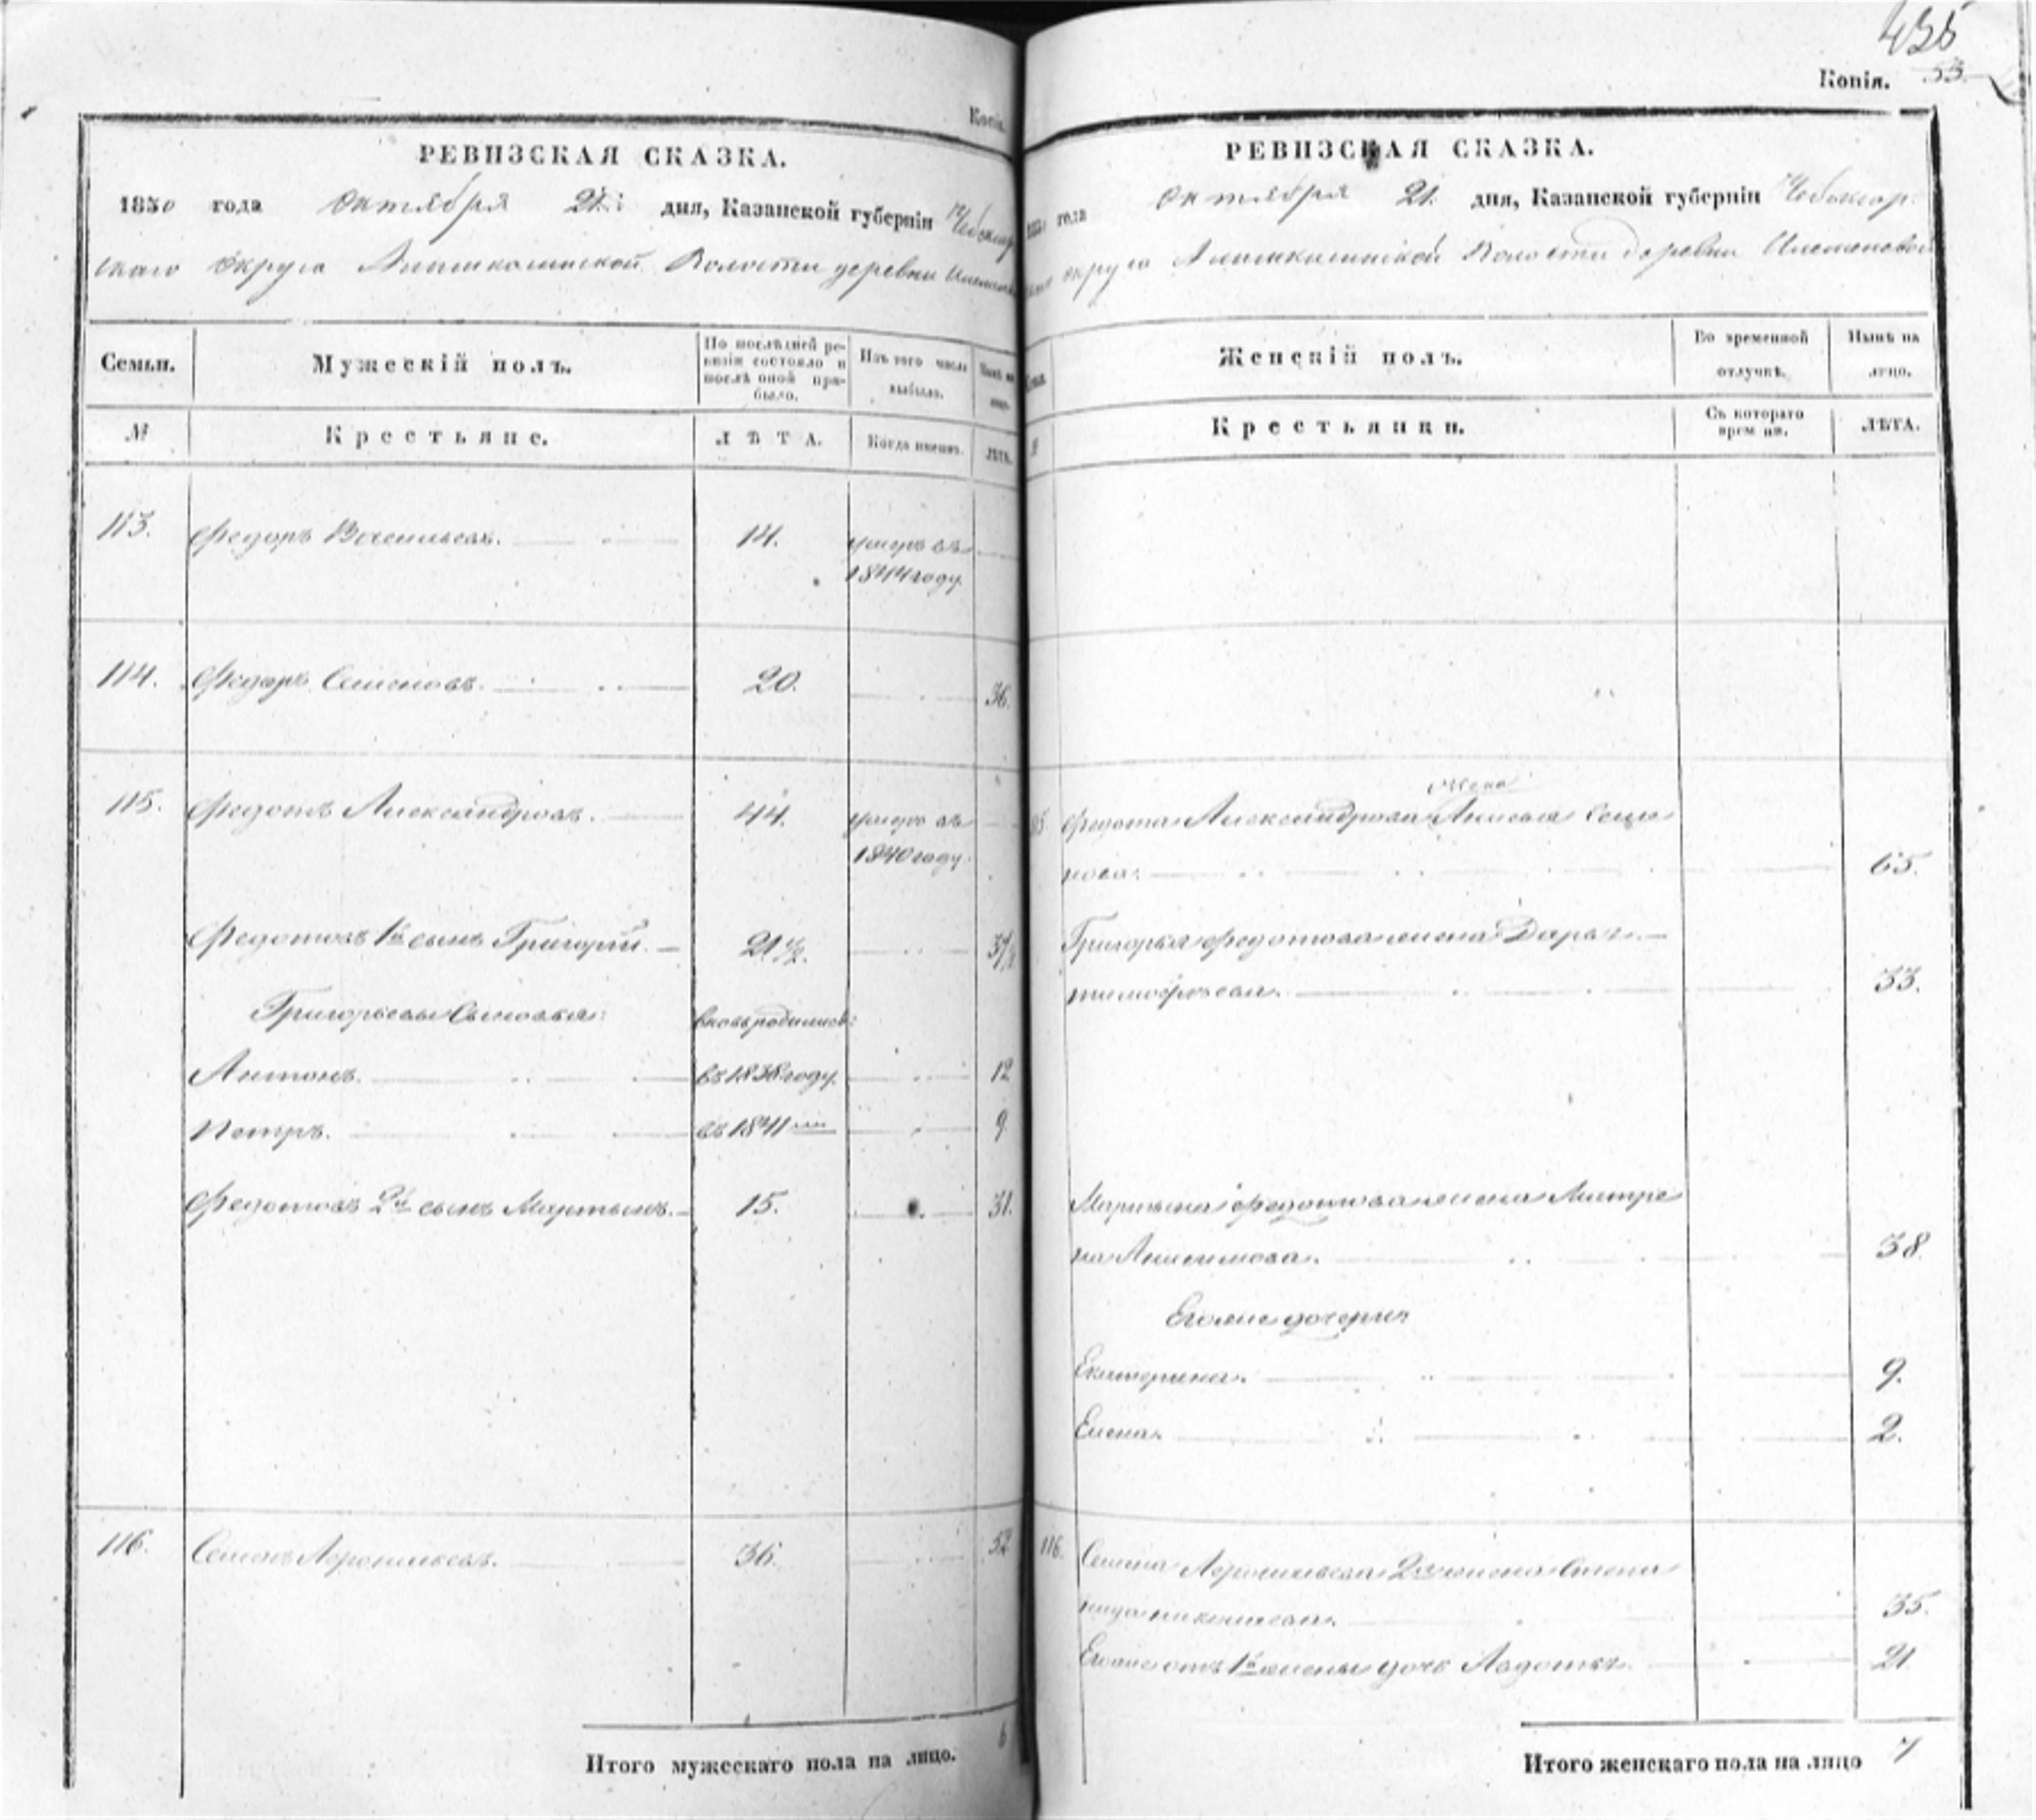 435
Копія. 53
Копія.
РЕВИЗСКАЯ СКАЗКА.
1850 года Октября 21 дня, Казанской губерніи Чебоксар
скаго Округа Липшкасинской Волости деревни
Семьи.
Мужескій полъ.
По послѣдней ре-
визіи состояло и
послѣ оной при-
было.
Изъ того числа
выбыло.
Нынѣ на
лицо.
№
Крестьяне.
ЛѢТА.
Когда именно.
ЛѢТА.
113. Федоръ Васильевъ. 14. умеръ въ
1844 году.
114. Федоръ Семеновъ. 20. 36.
115. Федотъ Александровъ. 44. умеръ въ
1840 году.
Федотовъ 1й сынъ Григорій. 21 1/2.
Григорьевы сыновья: вновьрожденной:
Антонъ. въ 1838 году. 12
Петръ. въ 1841 9
Федотовъ 2й сынъ Мартынъ. 15. 31.
116. Семенъ 36. 52
Итого мужескаго пола на лицо. 6
РЕВИЗСКАЯ СКАЗКА.
года Октября 21. дня, Казанской губерніи Чебоксар
Округа Липшкасинской Волости деревни
Женскій полъ.
Во временной
отлучкѣ.
Нынѣ на
лицо.
№
Крестьянки.
Съ котораго
времени.
ЛѢТА.
жена
Федота Александрова Анисья Семе
нова. 65.
Григорья Федотова жена Дарья
Тимофѣева. 33.
Мартына Федотова жена Матре
на Анисимова. 38.
Его же дочери
Екатерина. 9.
Елена. 2.
116. Семена 2я жена Степа
нида 35.
Его же отъ 1й жены дочь Авдотья. 21
Итого женскаго пола на лицо 7